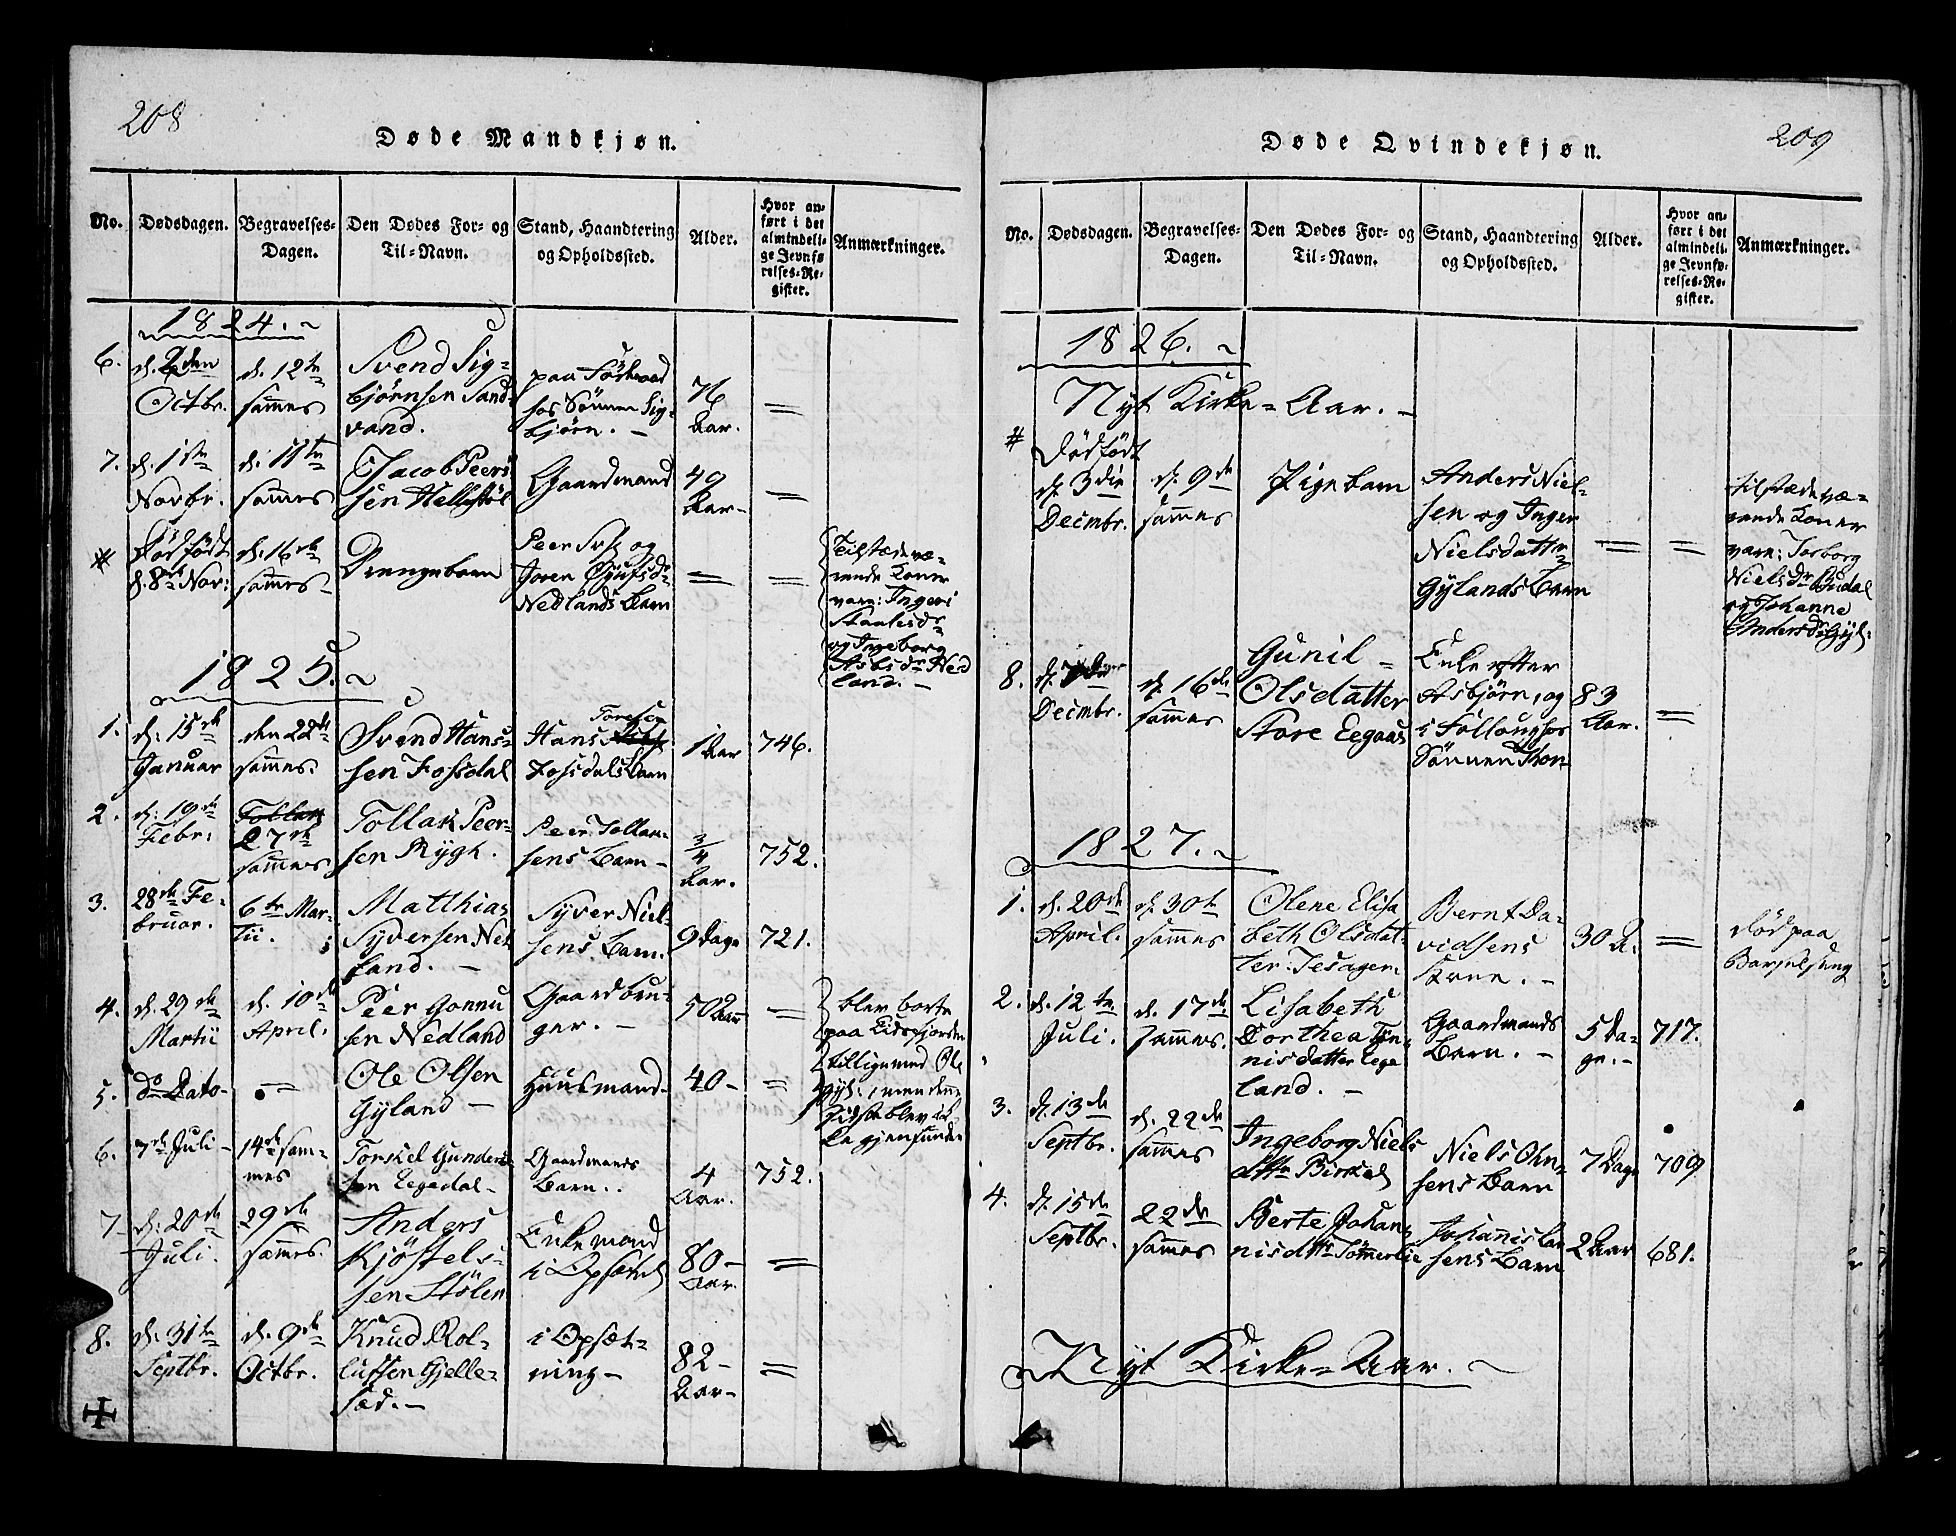 208
Døde Mandkjøn.
No. Dødsdagen. Begravelses-Dagen. Den Dødes For- og Til-Navn. Stand, Haandtering og Opholdssted. Alder. Hvor anført i det almindelige Jevnførelses-Register. Anmærkninger.
1824.
6. d. 2den Octbr. d. 12te sammes Svend Sigbjørnsen Sandvand. paa hos Sønnen Sigbjørn. 76 Aar. =
7. d. 1ste Novbr. d. 11te sammes Jacob Peersen Gaardmand 49 Aar =
# Dødfødt d. 8de Nov: d. 16de sammes Drengebarn Peer og Nedlands Barn = = Tilstedeværende Koner vare: Ingeri og Ingeborg Nedland.
1825.
1. d. 15de Januar den 22de sammes. Svend Hanssen Fossdal Hans Toresen Fossdals Barn 1 Aar 746.
2. d. 19de Febr: 27de sammes Tollak Peersen Rygh. Peer Tollaksens Barn 3/4 Aar. 752.
3. 28de Februar. 6te Martii. Matthias Syversen Netland. Syver Nielsens Barn. 9 Dage 721.
4. d. 29de Martii d. 10de April. Peer Gonnusen Nedland Gaardbruger. 50 Aar = blev borte paa Eidsfjorden
5. Do Dato = Ole Olsen Gyland Huusmand 40 = tilligemed Ole Gyl: men denne sidste blev ikke gjenfunden
6. 7de Juli 14de sammes Torkel Gundersen Eegedal Gaardmands Barn. 4 Aar. 752.
7 d. 20de Juli. 29de sammes. Anders Kjøstelsen Stølen Enkemand i Opsætn. 80 Aar =
8. d. 31te Septbr. d. 9de Octbr. Knud Rollufsen Gjellesæd. i Opsætning 82 Aar =
209
Døde Qvindekjøn.
No. Dødsdagen. Begravelses-Dagen. Den Dødes For- og Til-Navn. Stand, Haandtering og Opholdssted. Alder. Hvor anført i det almindelige Jevnførelses-Register. Anmærkninger.
1826.
Nyt Kirke-Aar.
# Dødfødt d. 3die Decmbr. d. 9de sammes Pigebarn Anders Nielsen og Inger Nielsdatter Gylands Barn = = tilstedeværende Koner vare: Torborg Nielsdr og Johanne Andersdr Gyl:
8. Decmbr. d. 16de sammes Gunil Olsdatter Store Eegaas Enke efter Asbjørn, og i hos Sønnen 83 Aar. =
1827.
1. d. 20de April. d. 30te sammes Olene Elisabeth Olsdatter Bernt Davidsens Kone. 30 A. = død paa Barselseng
2. d. 12te Juli. d. 17de sammes. Lisabeth Dorthea Tønnisdatter Egeland. Gaardmands Barn. 5 Dage. 717.
3. d. 13de Septbr. d. 22de sammes Ingeborg Nielsdttr Birkel Niels Barn 7 Dage 709
4. d. 15de Septbr. 22de sammes Berte Johannisdttr Sømmerlie Johannis Barn 2 Aar 681.
Nyt Kirke-Aar.